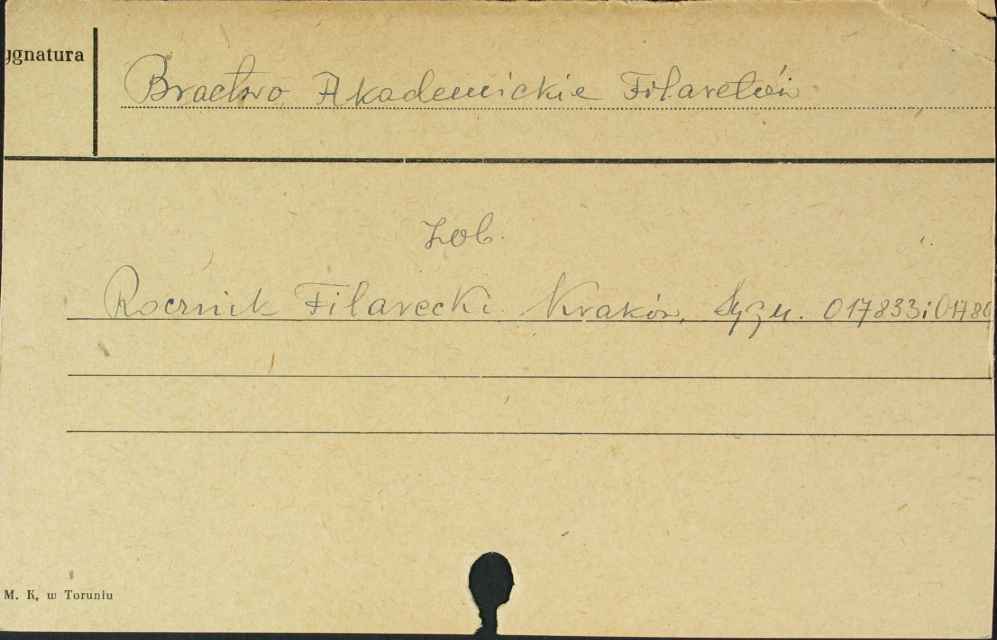 ygnatura
Bractwo Akademickie Filaretów
Zob.
Rocznik Filarecki. Kraków, Sygn. 017833 i 01780
M. K. w Toruniu